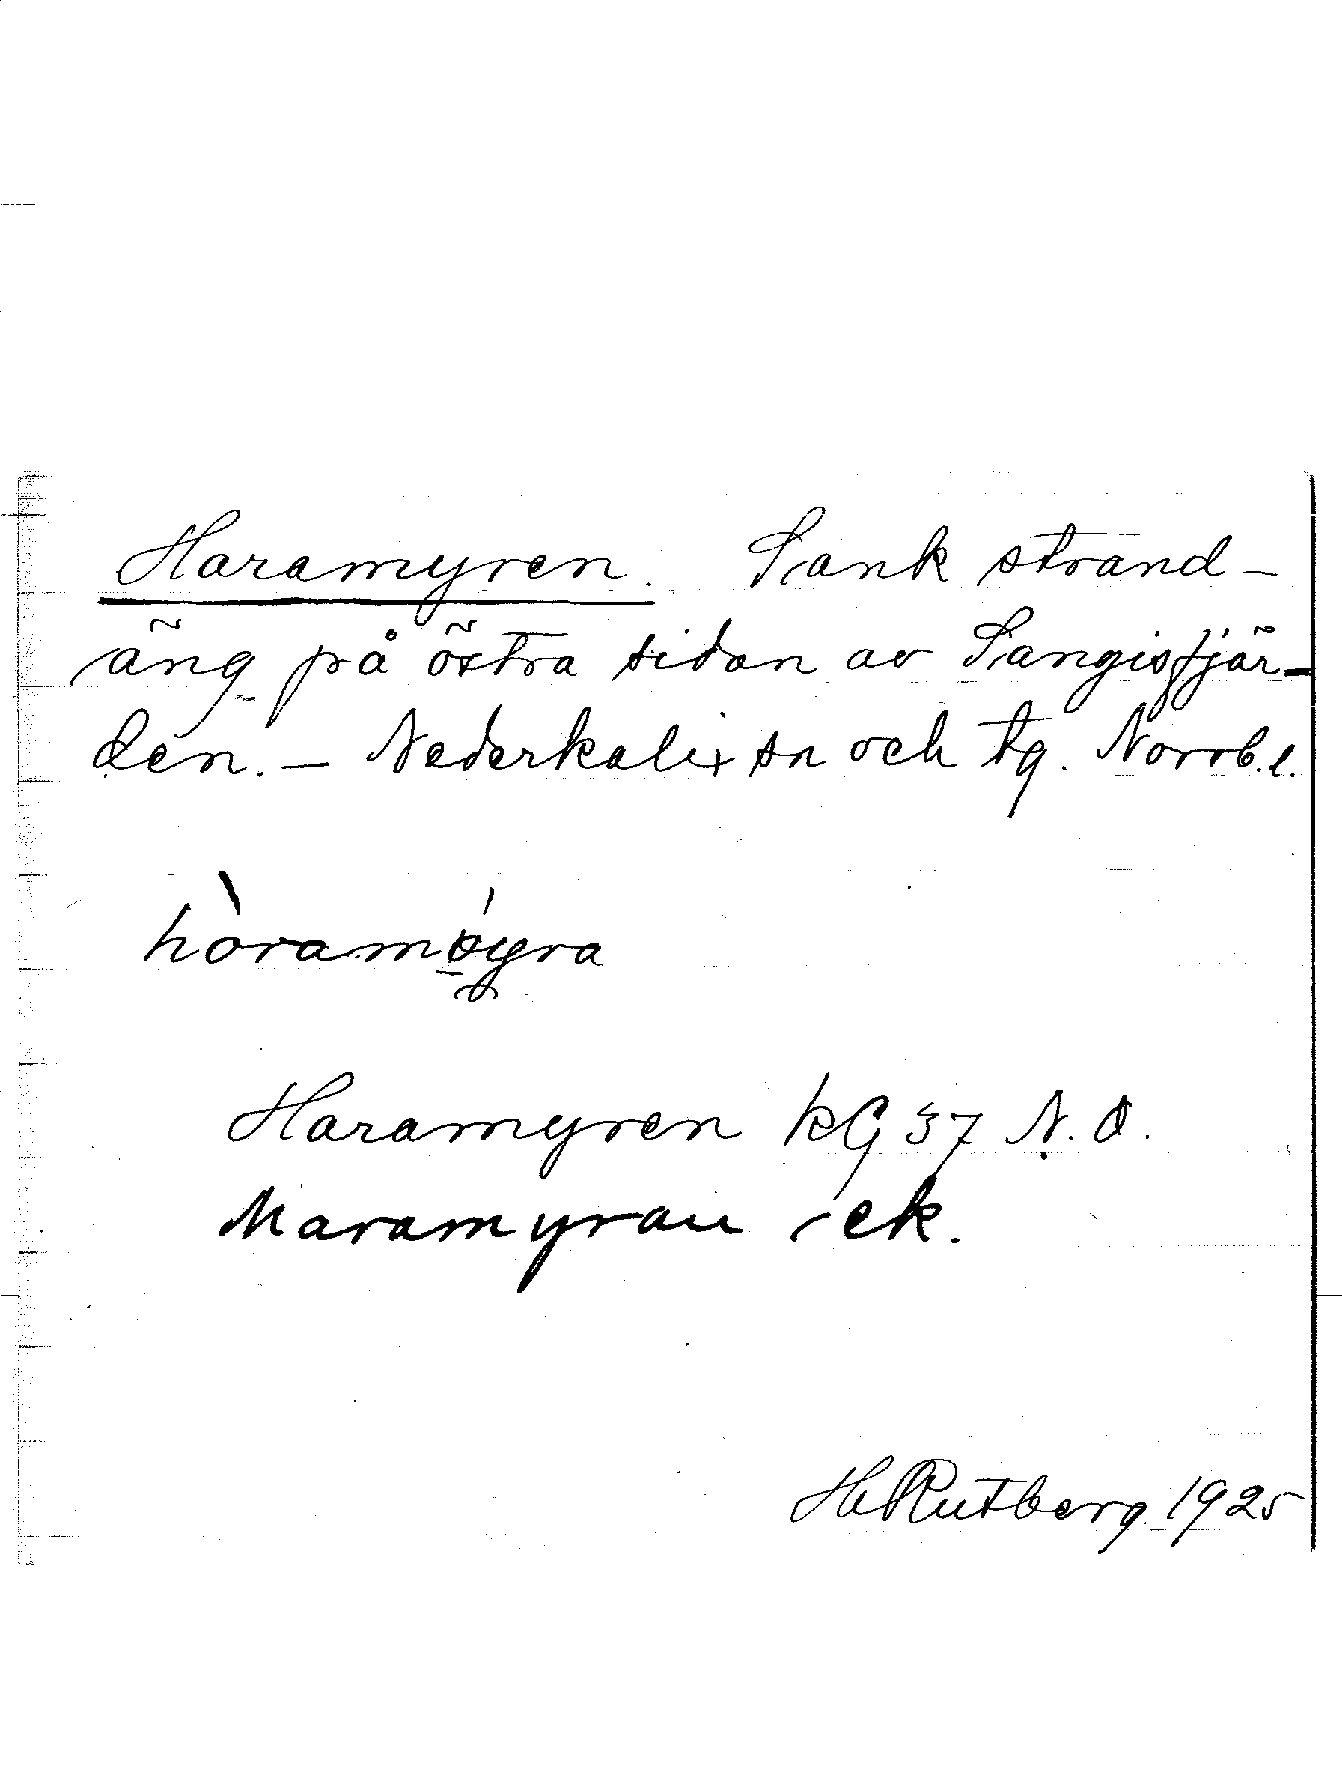 Haramyren. Sank strand-
äng på östra sidan av Sangisfjär-
den. - Nederkalix sn och tg. Norrb. l.
hòramǿyra
Haramyren kG 37 N. O.
Maramyran ek.
H. Rutberg 1925